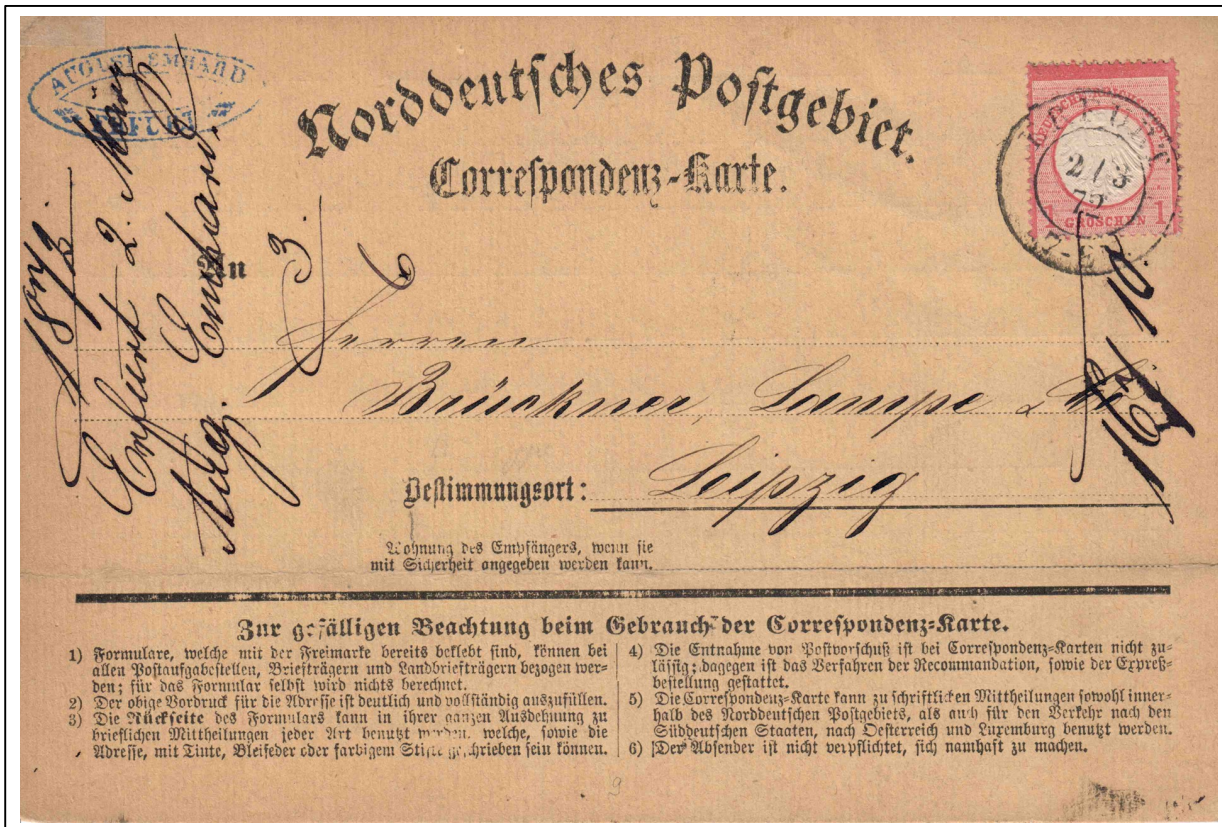 AUGUST EMHARD
ERFURT
Norddeutsches Postgebiet.
Correspondenz-Karte.
DEUTSCHE
1 GROSCHEN 1
ERFURT
2/3
72
7-8
1872.
Erfurt 2. März
Aug. Emhard.
3.
6
16/10.
An
Herren
Brückner, Lampe & Co
Bestimmungsort: Leipzig
Wohnung des Empfängers, wenn sie
mit Sicherheit angegeben werden kann.
Zur gefälligen Beachtung beim Gebrauch der Correspondenz-Karte.
1) Formulare, welche mit der Freimarke bereits beklebt sind, können bei
allen Postaufgabestellen, Briefträgern und Landbriefträgern bezogen wer-
den; für das Formular selbst wird nichts berechnet.
2) Der obige Vordruck für die Adresse ist deutlich und vollständig auszufüllen.
3) Die Rückseite des Formulars kann in ihrer ganzen Ausdehnung zu
brieflichen Mittheilungen jeder Art benutzt werden, welche, sowie die
Adresse, mit Tinte, Bleifeder oder farbigem Stifte geschrieben sein können.
4) Die Entnahme von Postvorschuß ist bei Correspondenz-Karten nicht zu-
lässig; dagegen ist das Verfahren der Recommandation, sowie der Expreß-
bestellung gestattet.
5) Die Correspondenz-Karte kann zu schriftlichen Mittheilungen sowohl inner-
halb des Norddeutschen Postgebiets, als auch für den Verkehr nach den
Süddeutschen Staaten, nach Oesterreich und Luxemburg benutzt werden.
6) Der Absender ist nicht verpflichtet, sich namhaft zu machen.
9